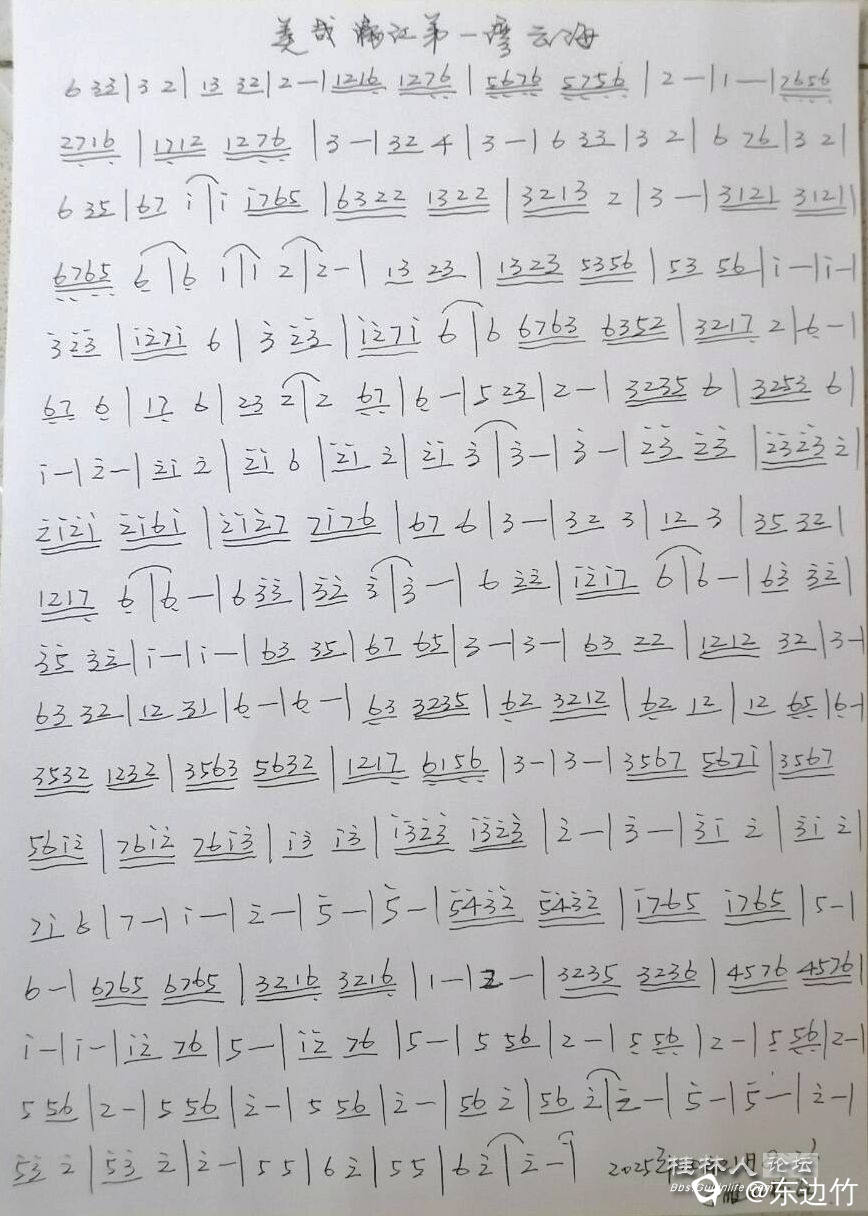 美哉漓江第一湾云海
6 33|3 2|13 32|2-|1216 1276|5676 5756|2-|1-|7656
2716|1712 1276|3-|32 4|3-|6 33|3 2|6 76|3 2|
6 35|67 i|i i765|6322 1322|3213 2|3-|3121 3121|
6765 6|6 1|1 2|2-|13 23|1323 5356|53 56|i-|i-|
3 23|i27i 6|3 23|i27i 6|6 6763 6352|3217 2|6-|
67 6|17 6|23 2|2 67|6-|5 23|2-|3235 6|3253 6|
i-|2-|2i 2|2i 6|2i 2|2i 3|3-|3-|23 23|2323 2|
2i2i 2i6i|2i27 7i76|67 6|3-|32 3|12 3|35 32|
1217 6|6-|6 33|32 3|3-|6 22|i2i7 6|6-|63 32|
35 32|i-|i-|63 35|67 65|3-|3-|63 22|1212 32|3-|
63 32|12 31|6-|6-|63 3235|62 3212|62 12|12 65|6-|
3532 1232|3563 5632|1217 6156|3-|3-|3567 567i|3567
56i2|76i2 76i3|i3 i3|i323 i323|2-|3-|3i 2|3i 2|
7i 6|7-|i-|2-|5-|5-|5432 5432|i765 i765|5-|
6-|6765 6765|3216 3216|1-|2-|3235 3236|4576 4576|
i-|i-|i2 76|5-|i2 76|5-|5 56|2-|5 56|2-|5 56|2-|
5 56|2-|5 56|2-|5 56|2-|56 2|56 2|2-|5-|5-|2-|
53 2|53 2|2-|5 5|6 2|5 5|6 2|2-| 2025年
桂林人论坛
Bbs.Guilinlife.Com
@东边竹